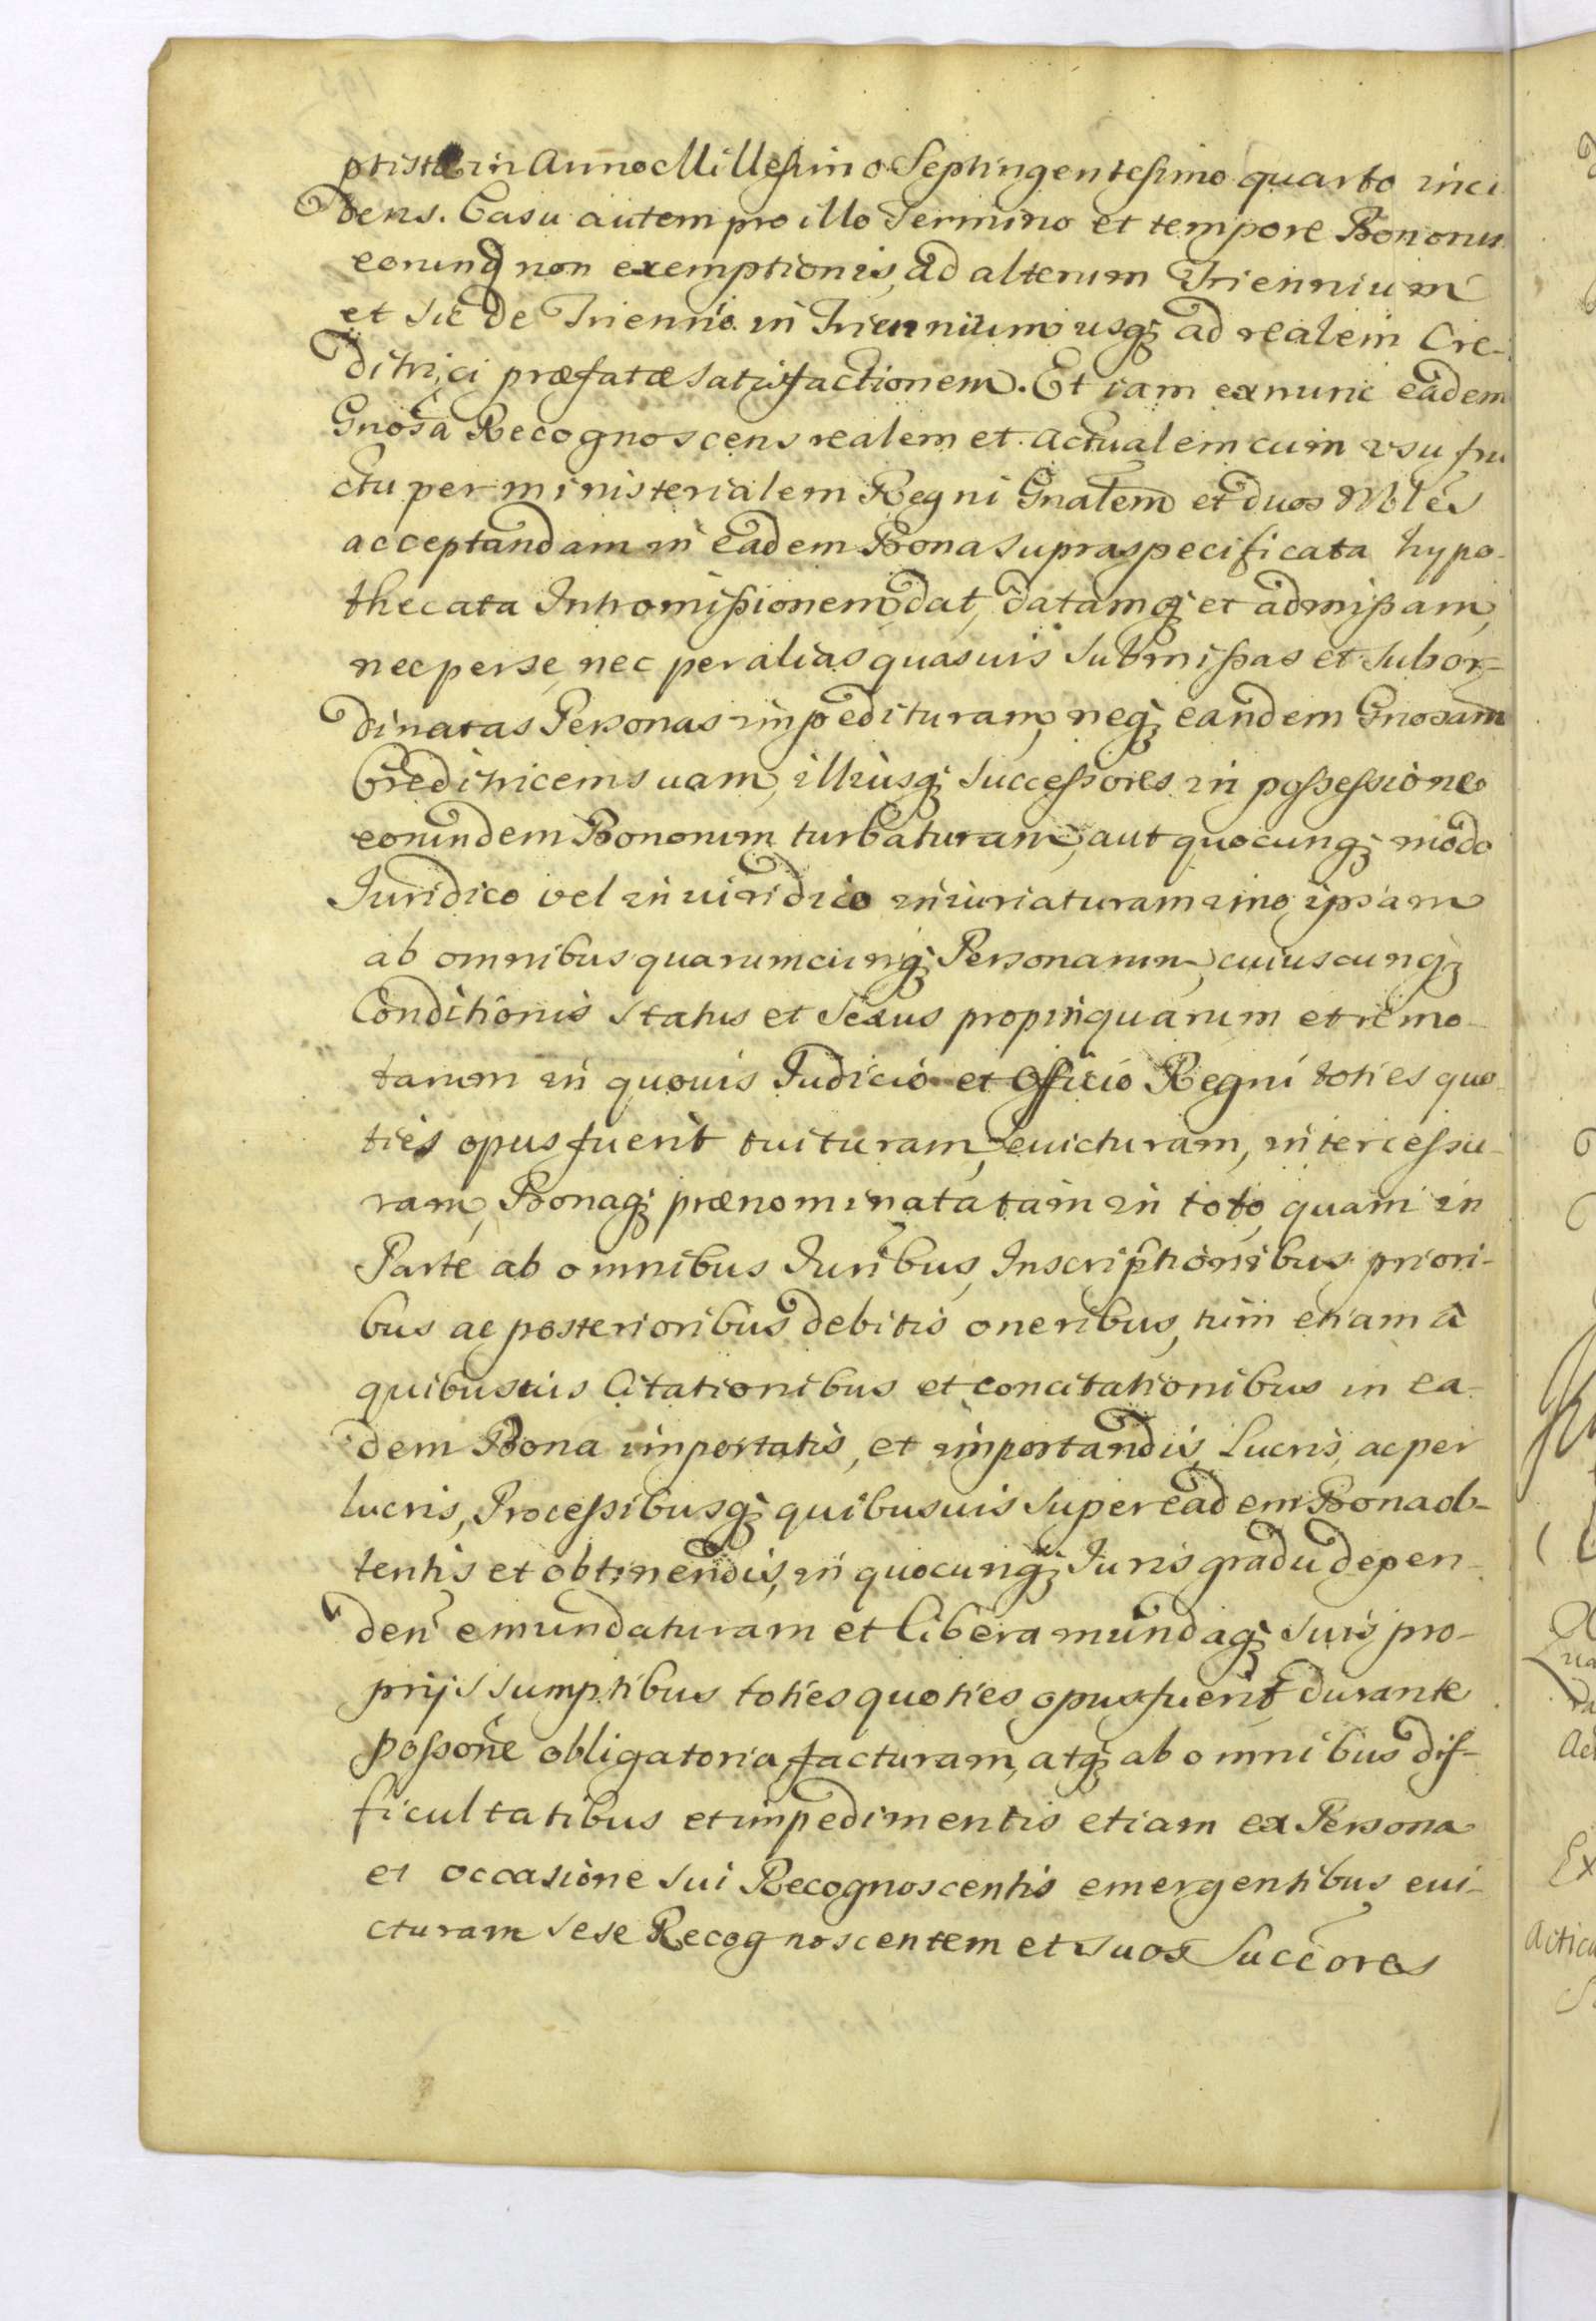 ptistæ in Anno Millesimo Septingentesimo quarto inci
dens. Casu autem pro illo Termino et tempore Bonorum
eorunq non exemptionis, ad alterum Triennium
et sic de Triennio in Triennium usq ad realem Cre-
ditrici præfatæ satisfactionem. Et iam ex nunc eadem
Gnosa Recognoscens realem et actualem cum usu fru
ctu per ministerialem Regni Gnalem et duos Nobles
acceptandam in eadem Bona supraspecificata hypo-
thecata Intromissionem dat, datamq et admissam,
nec per se, nec per alias quasuis submissas et subor-
dinatas Personas impedituram, neq eandem Gnosam
Creditricem suam, illiusq successores in possessione
eorundem Bonorum turbaturam, aut quocunq modo
Juridico vel iniuridico iniuriaturam imo ipsam
ab omnibus quarumcunq Personarum, cuiuscunq
Conditionis status et sexus propinquarum et remo-
tarum in quouis Judicio et Officio Regni toties quo
ties opus fuerit tuituram, euicturam, intercessu-
ram, Bonaq prænominata tam in toto quam in
Parte ab omnibus Juribus, Inscriptionibus priori-
bus ac posterioribus debitis oneribus, tum etiam à
quibusuis Citationibus et concitationibus in ea-
dem Bona importatis, et importandis, Lucris, ac per
lucris, Processibusq quibusuis super eadem Bona ob-
tentis et obtinendis, in quocunq Juris gradu depen-
den emundaturam et libera mundaq suis pro-
prijs sumptibus toties quoties opus fuerit durante
possone obligatoria, facturam, atq ab omnibus dif-
ficultatibus et impedimentis etiam ex Persona
et occasione sui Recognoscentis emergentibus eui-
cturam sese Recognoscentem et suos Succores